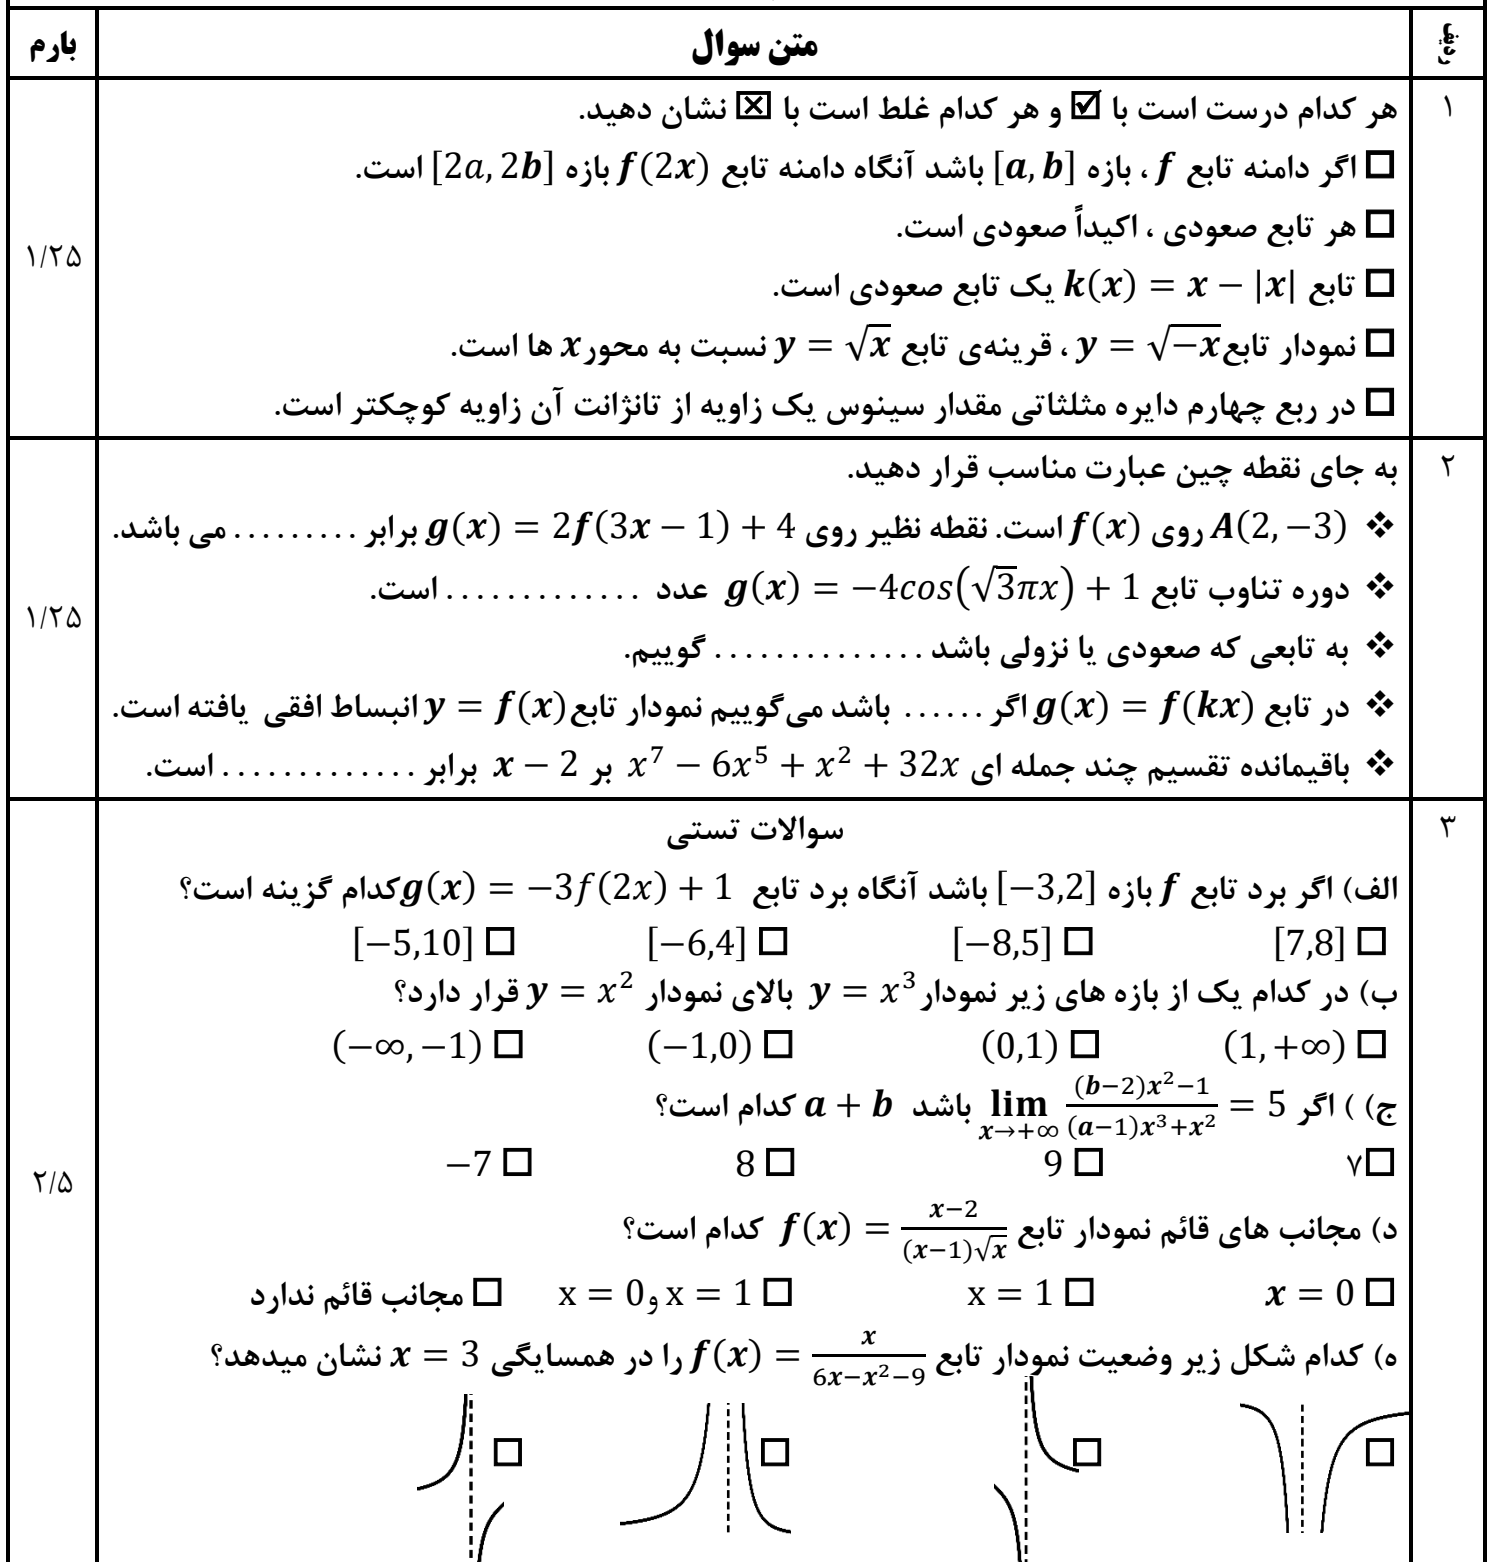 ردیف متن سوال بارم
۱ هر کدام درست است با ☑ و هر کدام غلط است با ☒ نشان دهید.
☐ اگر دامنه تابع f ، بازه [a, b] باشد آنگاه دامنه تابع f(2x) بازه [2a, 2b] است.
☐ هر تابع صعودی ، اکیداً صعودی است.
☐ تابع k(x) = x − |x| یک تابع صعودی است.
☐ نمودار تابع y = √−x ، قرینه‌ی تابع y = √x نسبت به محور x ها است.
☐ در ربع چهارم دایره مثلثاتی مقدار سینوس یک زاویه از تانژانت آن زاویه کوچکتر است.
۱/۲۵
۲ به جای نقطه چین عبارت مناسب قرار دهید.
❖ A(2, −3) روی f(x) است. نقطه نظیر روی g(x) = 2f(3x − 1) + 4 برابر ......... می باشد.
❖ دوره تناوب تابع g(x) = −4cos(√3πx) + 1 عدد ............. است.
❖ به تابعی که صعودی یا نزولی باشد .............. گوییم.
❖ در تابع g(x) = f(kx) اگر ...... باشد می‌گوییم نمودار تابع y = f(x) انبساط افقی یافته است.
❖ باقیمانده تقسیم چند جمله ای x⁷ − 6x⁵ + x² + 32x بر x − 2 برابر ............. است.
۱/۲۵
۳ سوالات تستی
الف) اگر برد تابع f بازه [−3,2] باشد آنگاه برد تابع g(x) = −3f(2x) + 1 کدام گزینه است؟
☐ [7,8] ☐ [−8,5] ☐ [−6,4] ☐ [−5,10]
ب) در کدام یک از بازه های زیر نمودار y = x³ بالای نمودار y = x² قرار دارد؟
☐ (1, +∞) ☐ (0,1) ☐ (−1,0) ☐ (−∞, −1)
ج) ) اگر lim x→+∞ ((b−2)x²−1)/((a−1)x³+x²) = 5 باشد a + b کدام است؟
☐ ۷ ☐ 9 ☐ 8 ☐ −7
د) مجانب های قائم نمودار تابع f(x) = (x−2)/((x−1)√x) کدام است؟
☐ x = 0 ☐ x = 1 ☐ x = 1 و x = 0 ☐ مجانب قائم ندارد
ه) کدام شکل زیر وضعیت نمودار تابع f(x) = x/(6x−x²−9) را در همسایگی x = 3 نشان میدهد؟
☐ ☐ ☐ ☐
۲/۵